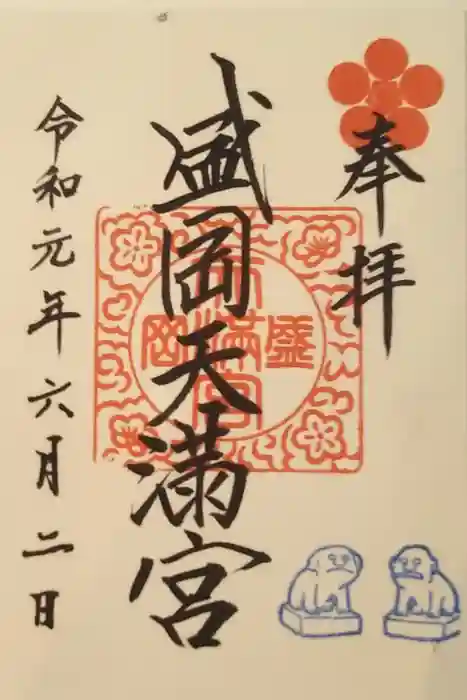 奉拝
盛岡天満宮
盛岡天満宮
令和元年六月二日